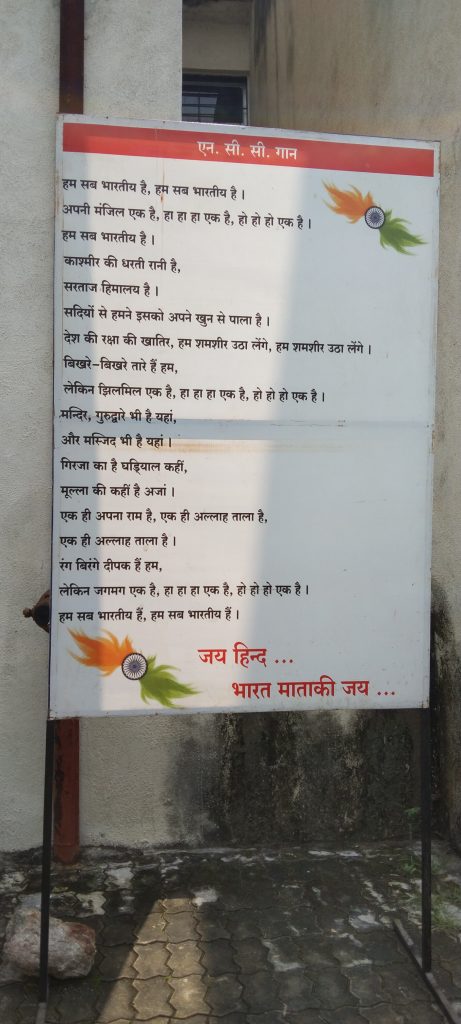 एन. सी. सी. गान
हम सब भारतीय है, हम सब भारतीय है ।
अपनी मंजिल एक है, हा हा हा एक है, हो हो हो एक है ।
हम सब भारतीय है ।
काश्मीर की धरती रानी है,
सरताज हिमालय है ।
सदियों से हमने इसको अपने खुन से पाला है ।
देश की रक्षा की खातिर, हम शमशीर उठा लेंगे, हम शमशीर उठा लेंगे ।
बिखरे-बिखरे तारे हैं हम,
लेकिन झिलमिल एक है, हा हा हा एक है, हो हो हो एक है ।
मन्दिर, गुरुद्वारे भी है यहां,
और मस्जिद भी है यहां ।
गिरजा का है घड़ियाल कहीं,
मूल्ला की कहीं है अजां ।
एक ही अपना राम है, एक ही अल्लाह ताला है,
एक ही अल्लाह ताला है ।
रंग बिरंगे दीपक हैं हम,
लेकिन जगमग एक है, हा हा हा एक है, हो हो हो एक है ।
हम सब भारतीय हैं, हम सब भारतीय हैं ।
जय हिन्द ...
भारत माताकी जय ...